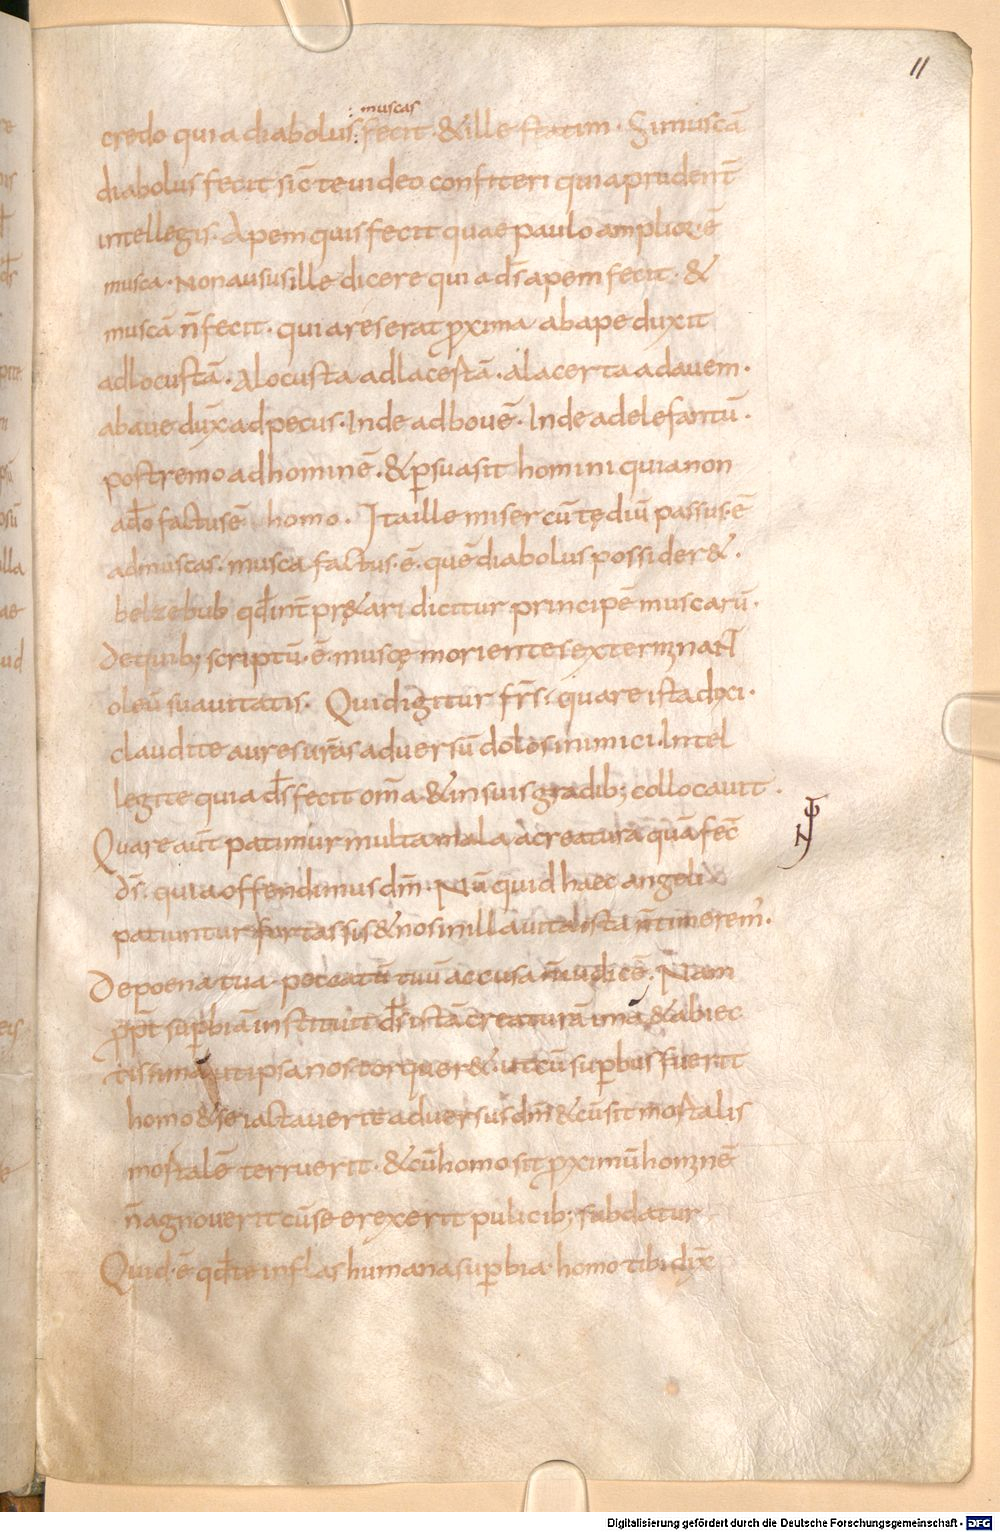 11
muscas
credo quia diabolus fecit · & ille statim · Si muscā
diabolus fecit sic̄ te uideo confiteri quia prudent̄
intellegis · Apem quis fecit quae paulo amplior ē
musca · Non ausus ille dicere quia d̄s apem fecit · &
muscā n̄ fecit · quia res erat ꝓxima ab ape duxit
ad locustā · A locusta ad lacertā · a lacerta ad auem ·
ab aue dux̄ ad pecus · Inde ad bouē · Inde ad elefantū ·
postremo ad hominē · & ꝑsuasit homini quia non
a d̄o factus ē homo · Ita ille miser cū tędiū passus ē
ad muscas · musca factus · ē · quē diabolus possider& ·
belzebub qd̄ int̄ pr&ari dicitur principē muscarū ·
De quib; scriptū · ē · muscę morientes exterminaNT
oleū suauitatis · Quid igitur fr̄s · quare ista dixi ·
claudite aures ur̄as aduersū dolos inimici · Intel
legite quia d̄s fecit om̄a · & in suis gradib; collocauit ·
Quare aūt patimur multa mala a creatura quā fec̄
d̄s · quia offendimus dm̄ · Nū quid haec angeli
patiuntur fortassis & nos in illa uita ista n̄ timerem̄ ·
De poena tua peccatū tuū accusa n̄ iudicē · Nam
ꝓpt̄ suꝑbiā instituit d̄s istā creaturā imā & abiec
tissimā ut ipsa nos torquer& · ut cū suꝑbus fuerit
homo & se iactauerit aduersus dm̄ & cū sit mortalis
mortalē terruerit · & cū homo sit ꝓximū hominē
n̄ agnouerit cū se erexerit pulicib; subdatur
Quid · ē qd̄ te inflas humana suꝑbia · homo tibi dix̄
Digitalisierung gefördert durch die Deutsche Forschungsgemeinschaft - DFG